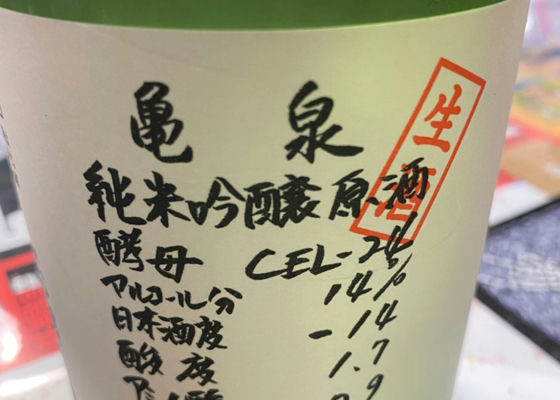 亀泉
生酒
純米吟醸原酒
酵母 CEL-24
アルコール分 14%
日本酒度 -14
酸度 1.7